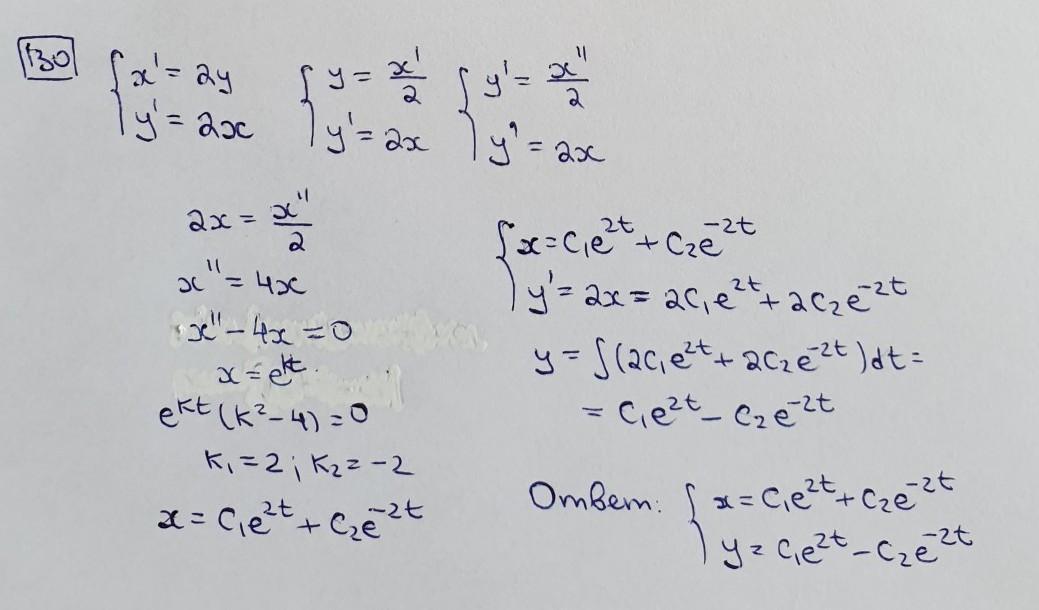 130
{ x' = 2y
y' = 2x
{ y = x'/2
y' = 2x
{ y' = x''/2
y' = 2x
2x = x''/2
x'' = 4x
x'' - 4x = 0
x = e^{kt}
e^{kt} (k² - 4) = 0
k₁ = 2; k₂ = -2
x = C₁e^{2t} + C₂e^{-2t}
{ x = C₁e^{2t} + C₂e^{-2t}
y' = 2x = 2C₁e^{2t} + 2C₂e^{-2t}
y = ∫(2C₁e^{2t} + 2C₂e^{-2t})dt =
= C₁e^{2t} - C₂e^{-2t}
Ответ: { x = C₁e^{2t} + C₂e^{-2t}
y = C₁e^{2t} - C₂e^{-2t}